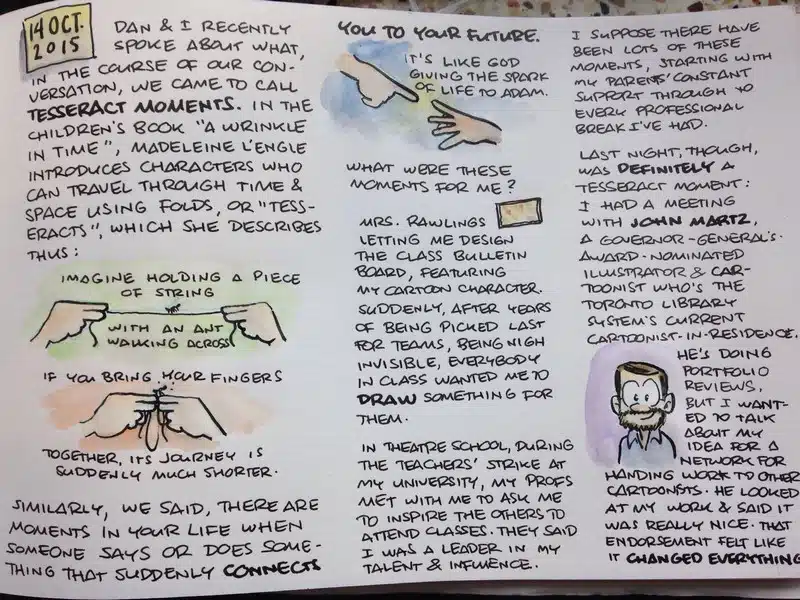 14 OCT.
2015
DAN & I RECENTLY
SPOKE ABOUT WHAT,
IN THE COURSE OF OUR CON-
VERSATION, WE CAME TO CALL
TESSERACT MOMENTS. IN THE
CHILDREN'S BOOK "A WRINKLE
IN TIME", MADELEINE L'ENGLE
INTRODUCES CHARACTERS WHO
CAN TRAVEL THROUGH TIME &
SPACE USING FOLDS, OR "TESS-
ERACTS", WHICH SHE DESCRIBES
THUS:
IMAGINE HOLDING A PIECE
OF STRING
WITH AN ANT
WALKING ACROSS
IF YOU BRING YOUR FINGERS
TOGETHER, ITS JOURNEY IS
SUDDENLY MUCH SHORTER.
SIMILARLY, WE SAID, THERE ARE
MOMENTS IN YOUR LIFE WHEN
SOMEONE SAYS OR DOES SOME-
THING THAT SUDDENLY CONNECTS
YOU TO YOUR FUTURE.
IT'S LIKE GOD
GIVING THE SPARK
OF LIFE TO ADAM.
WHAT WERE THESE
MOMENTS FOR ME?
MRS. RAWLINGS
LETTING ME DESIGN
THE CLASS BULLETIN
BOARD, FEATURING
MY CARTOON CHARACTER.
SUDDENLY, AFTER YEARS
OF BEING PICKED LAST
FOR TEAMS, BEING NIGH
INVISIBLE, EVERYBODY
IN CLASS WANTED ME TO
DRAW SOMETHING FOR
THEM.
IN THEATRE SCHOOL, DURING
THE TEACHERS' STRIKE AT
MY UNIVERSITY, MY PROFS
MET WITH ME TO ASK ME
TO INSPIRE THE OTHERS TO
ATTEND CLASSES. THEY SAID
I WAS A LEADER IN MY
TALENT & INFLUENCE.
I SUPPOSE THERE HAVE
BEEN LOTS OF THESE
MOMENTS, STARTING WITH
MY PARENTS' CONSTANT
SUPPORT THROUGH TO
EVERY PROFESSIONAL
BREAK I'VE HAD.
LAST NIGHT, THOUGH,
WAS DEFINITELY A
TESSERACT MOMENT:
I HAD A MEETING
WITH JOHN MARTZ,
A GOVERNOR-GENERAL'S-
AWARD-NOMINATED
ILLUSTRATOR & CAR-
TOONIST WHO'S THE
TORONTO LIBRARY
SYSTEM'S CURRENT
CARTOONIST-IN-RESIDENCE.
HE'S DOING
PORTFOLIO
REVIEWS,
BUT I WANT-
ED TO TALK
ABOUT MY
IDEA FOR A
NETWORK FOR
HANDING WORK TO OTHER
CARTOONISTS. HE LOOKED
AT MY WORK & SAID IT
WAS REALLY NICE. THAT
ENDORSEMENT FELT LIKE
IT CHANGED EVERYTHING